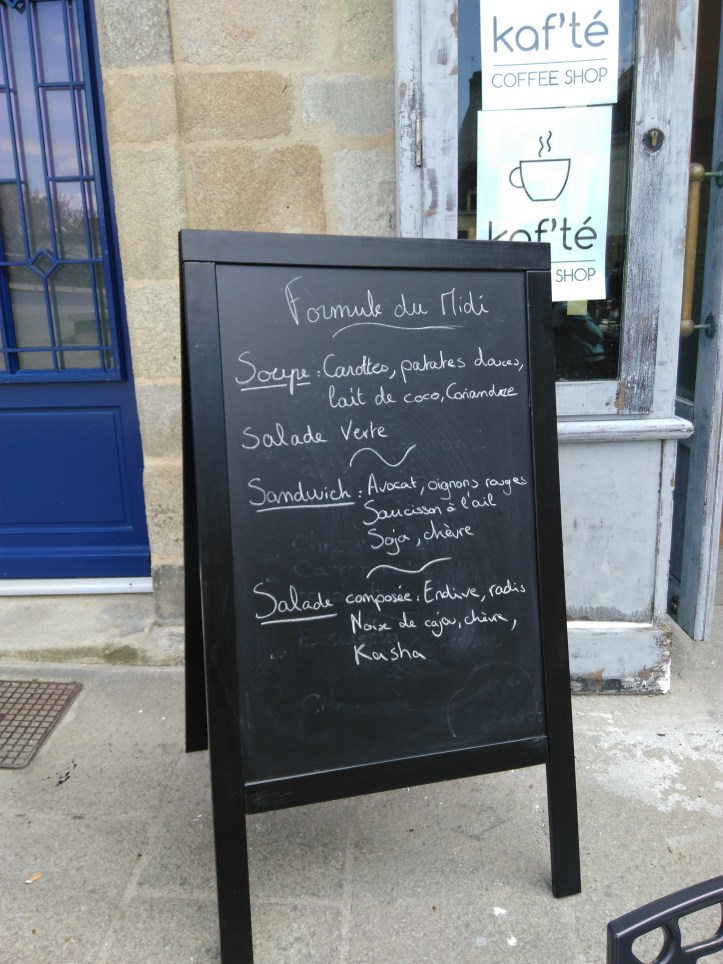 kaf'té
COFFEE SHOP
kaf'té
SHOP
Formule du Midi
Soupe : Carottes, patates douces,
lait de coco, Coriandre
Salade Verte
Sandwich : Avocat, oignons rouges
Saucisson à l'ail
Soja, chèvre
Salade composée : Endive, radis
Noix de cajou, chèvre,
Kasha